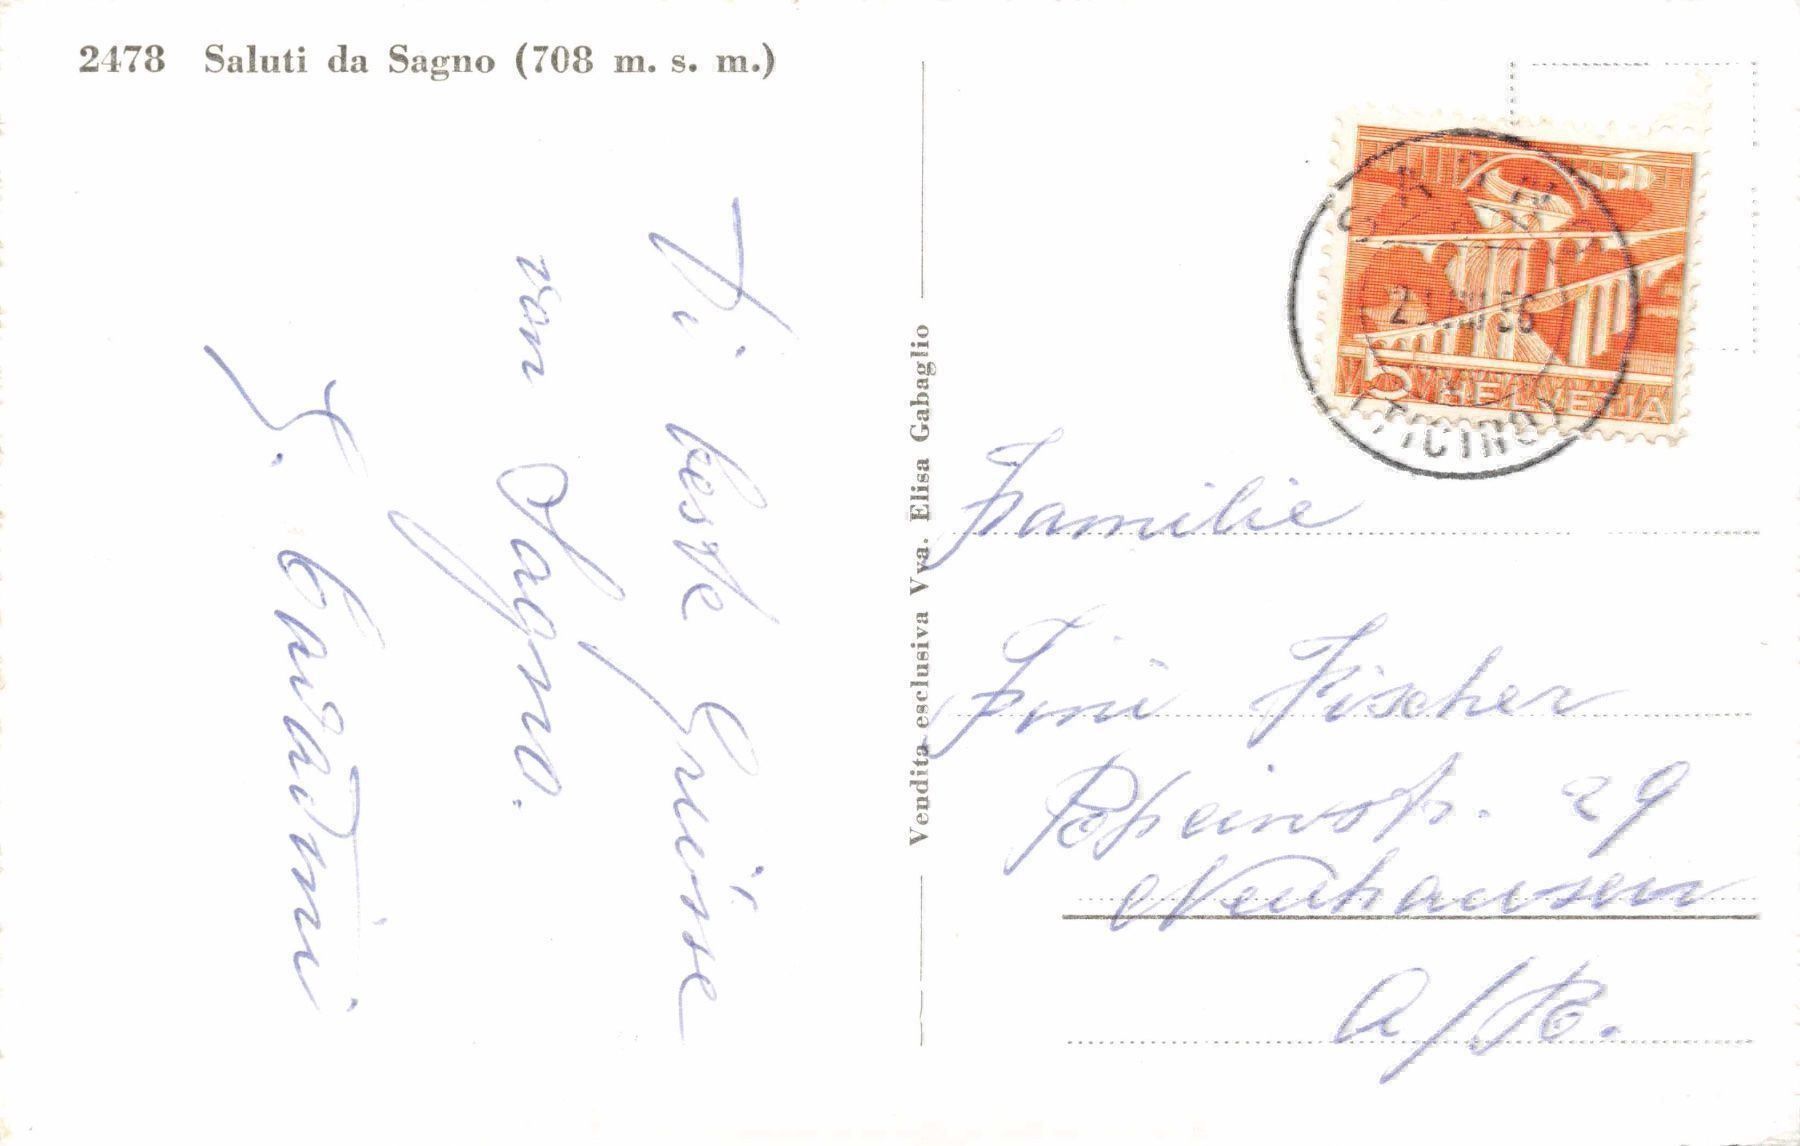 2478 Saluti da Sagno (708 m. s. m.)
Di beste Grüsse
von Sagno.
Vendita esclusiva Vva. Elisa Gabaglio
5 HELVETIA
(TICINO)
Familie
Fini Fischer
Rheinstr. 29
Neuhausen
a/R.